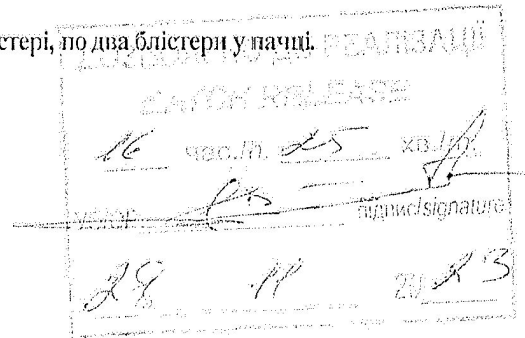 стері, по два блістери у пачці.
ДО РЕАЛІЗАЦІЇ
BATCH RELEASE
16 час./h. 25 хв./m.
підпис/signature
28 .11 20 23